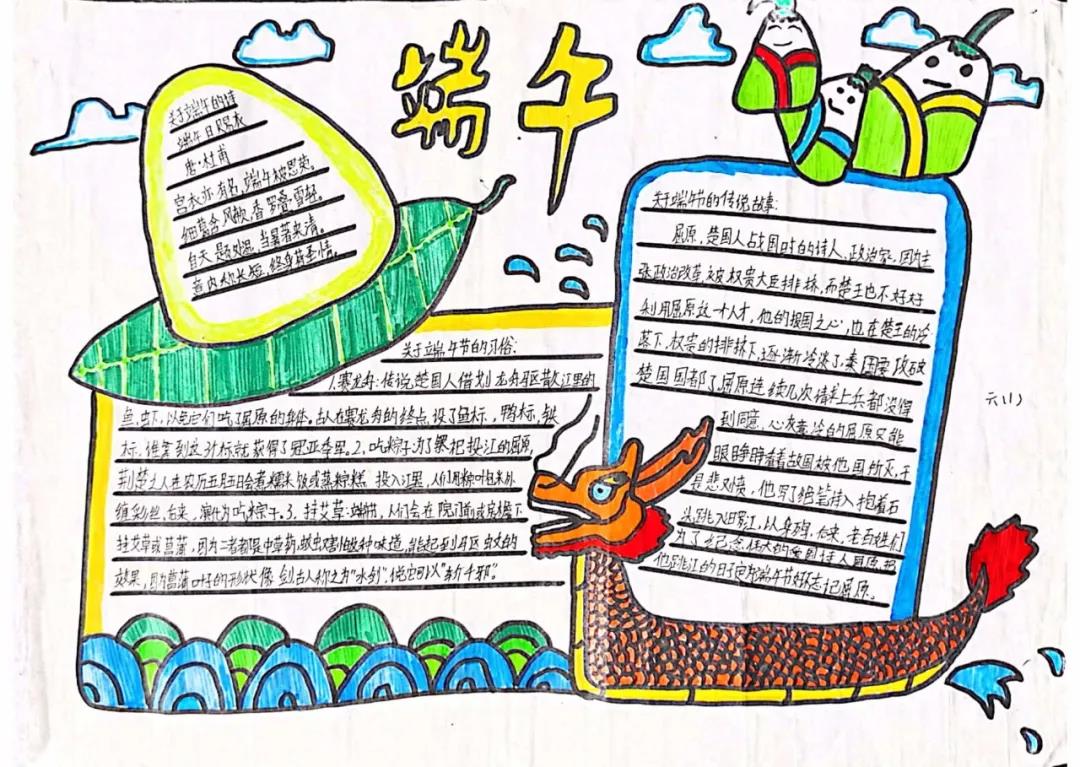 端午
关于端午的诗
端午日赐衣
唐·杜甫
宫衣亦有名,端午被恩荣。
细葛含风软,香罗叠雪轻。
自天题处湿,当暑著来清。
意内称长短,终身荷圣情。
关于端午节的传说故事:
屈原,楚国人战国时的诗人、政治家,因为主
张政治改革,被权贵大臣排挤,而楚王也不好好
利用屈原这一个人才,他的报国之心,也在楚王的冷
落下,权贵的排挤下,逐渐冷淡了秦国要攻破
楚国国都了屈原连续几次请求上兵都没得
到同意,心灰意冷的屈原只能
眼睁睁看着故国被他国所灭,于
是悲又愤,他写了绝笔诗入抱着石
头跳入汨罗江,以身殉,后来,老百姓们
为了纪念伟大的爱国诗人屈原,把
他跳江的日子定为端午节好忘记屈原。
关于端午节的习俗:
1.赛龙舟:传说,楚国人借划龙舟驱散江里的
鱼,虾,以免它们吃了屈原的身体。古人在赛龙舟的终点,设了鱼标,鸭标,铁
标,谁拿到这个标就获得了冠亚季军。2.吃粽子:为了祭祀投江的屈原,
荆楚之人在农历五月五日会煮糯米饭或蒸粽糕 投入江里,人们用粽叶包米外
缠彩丝,后来,演化为吃粽子。3.挂艾草:端午节,人们会在院门前或房檐下
挂艾草或菖蒲,因为二者都是中草药,蚊虫害怕这种味道,能起到驱虫蚊的
效果,因为菖蒲叶的形状像剑古人称之为“水剑”,说它可以“斩千邪”。
六11)